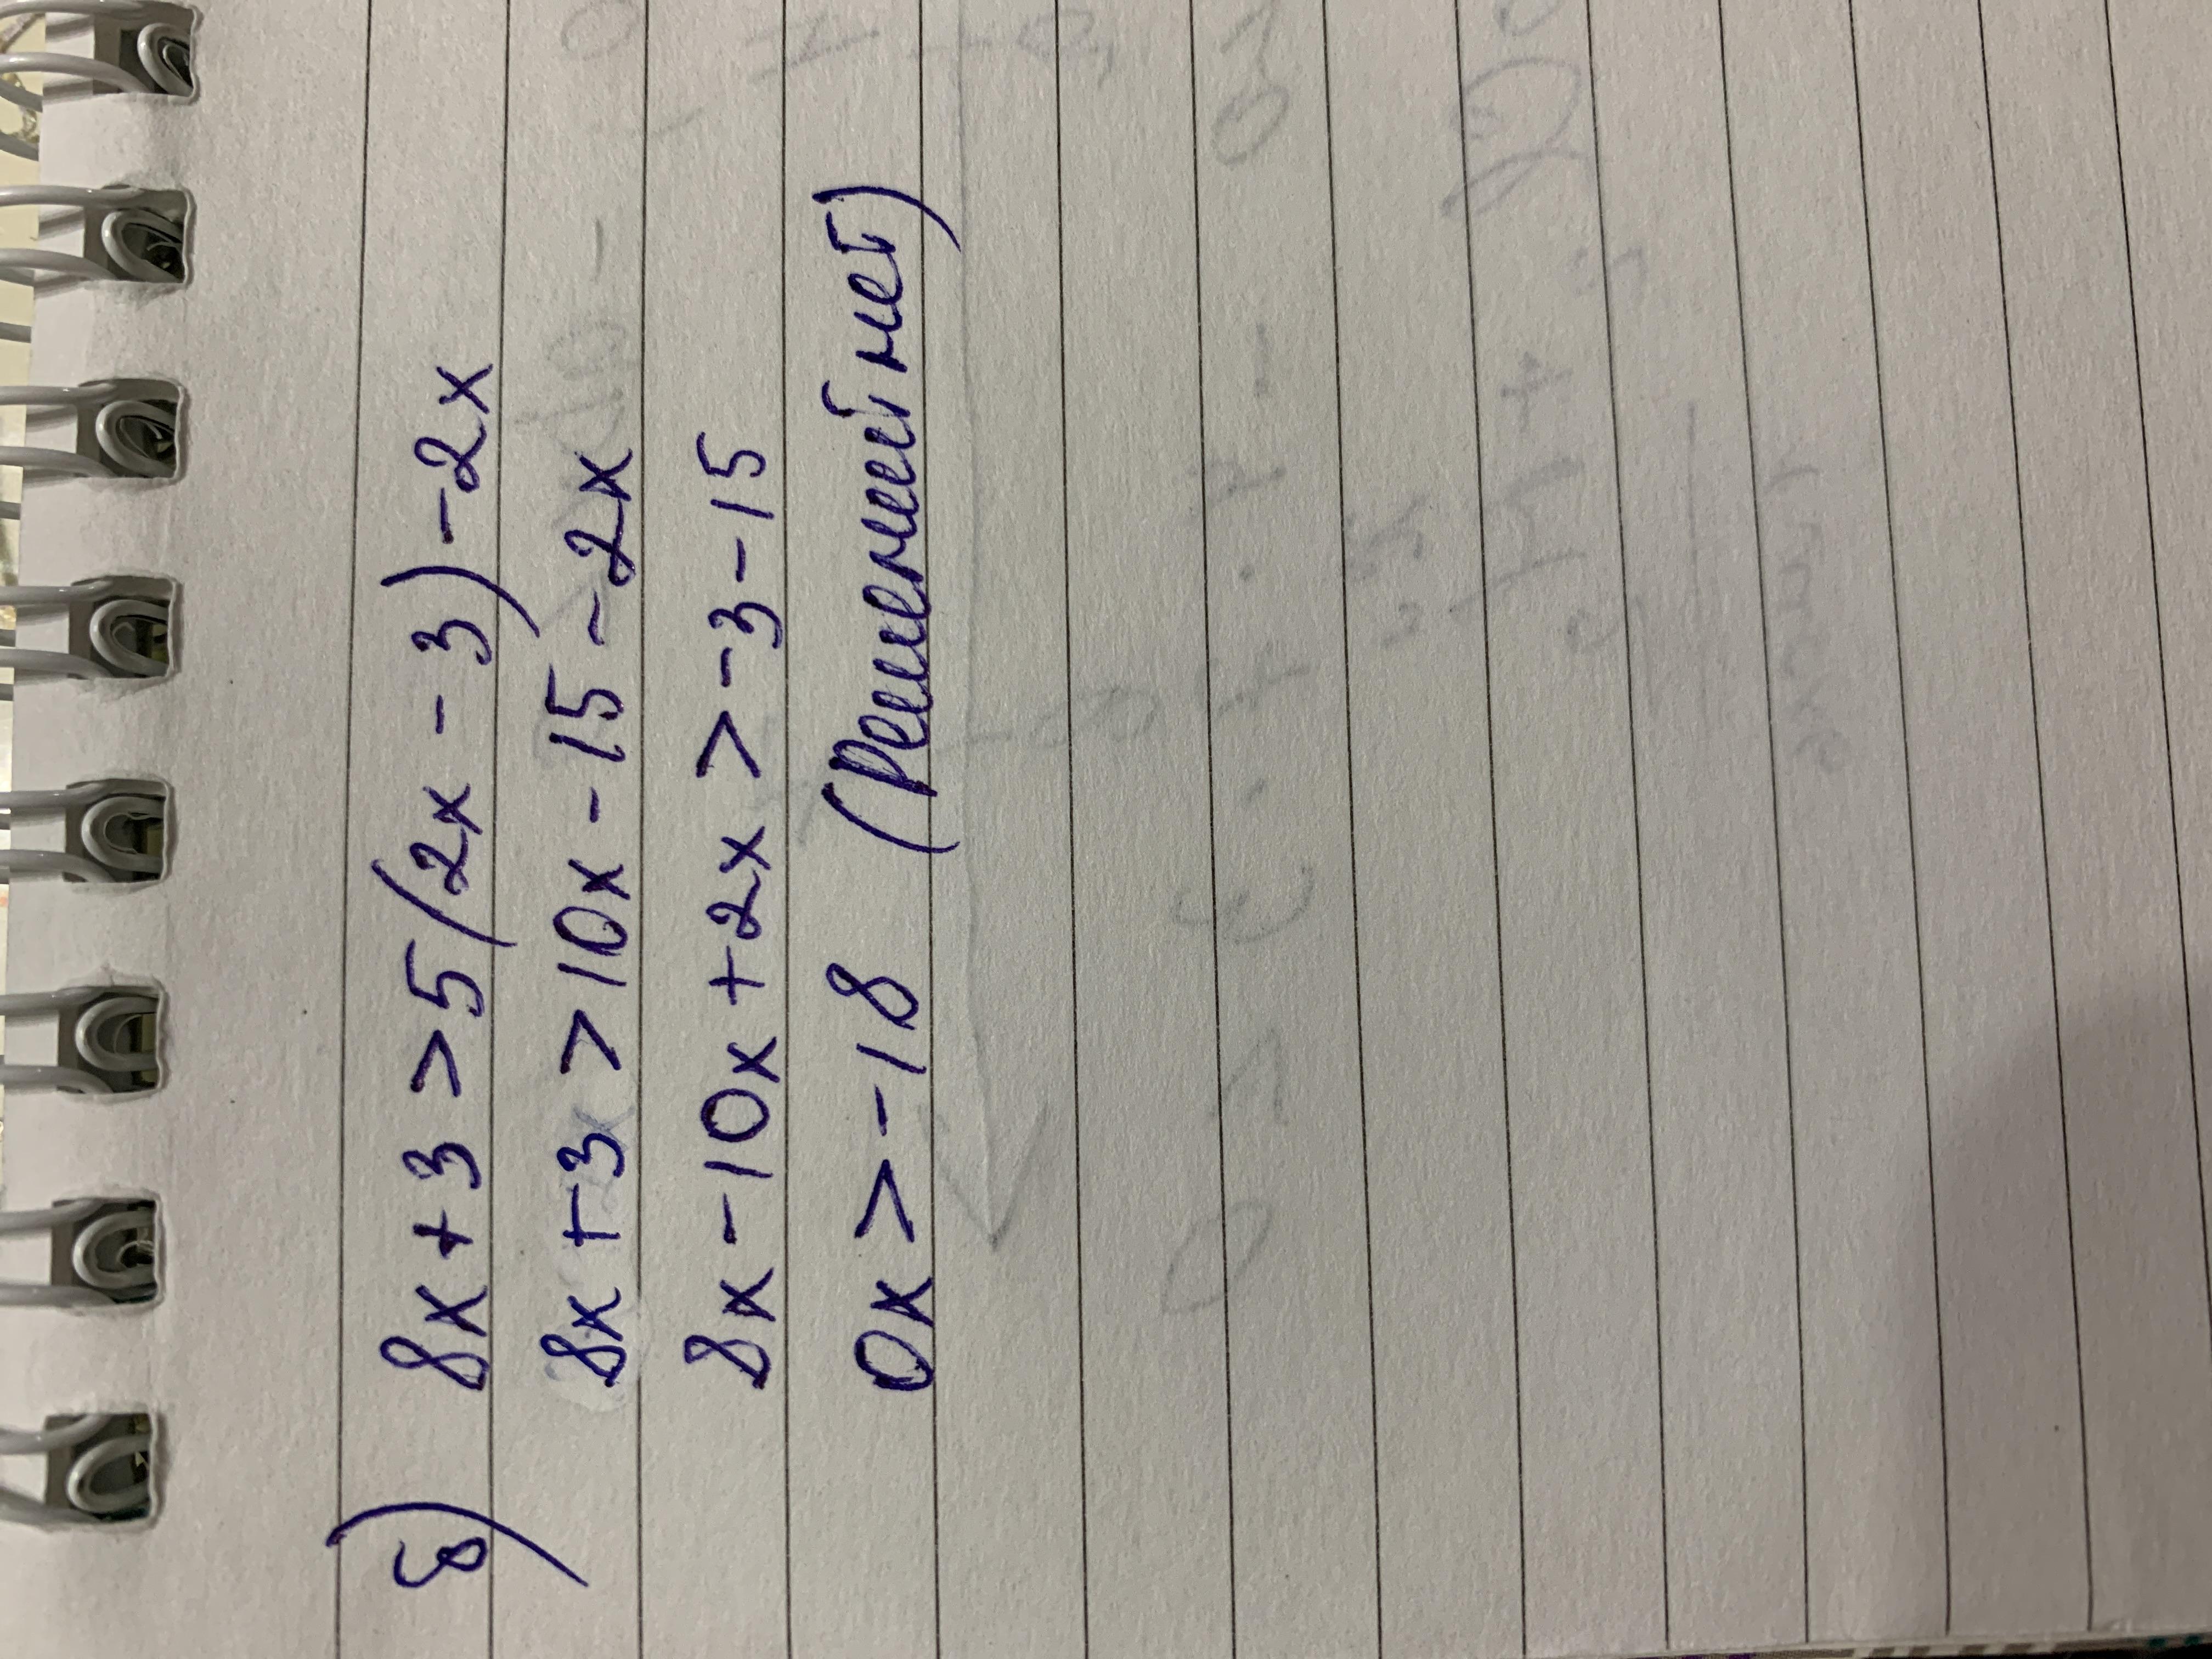 б) 8x + 3 > 5(2x - 3) - 2x
8x + 3 > 10x - 15 - 2x
8x - 10x + 2x > -3 - 15
0x > -18 (Решений нет)